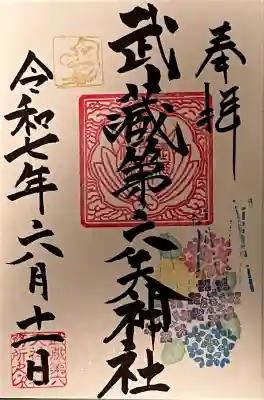 奉拝
武蔵第六天神社
令和七年六月十一日